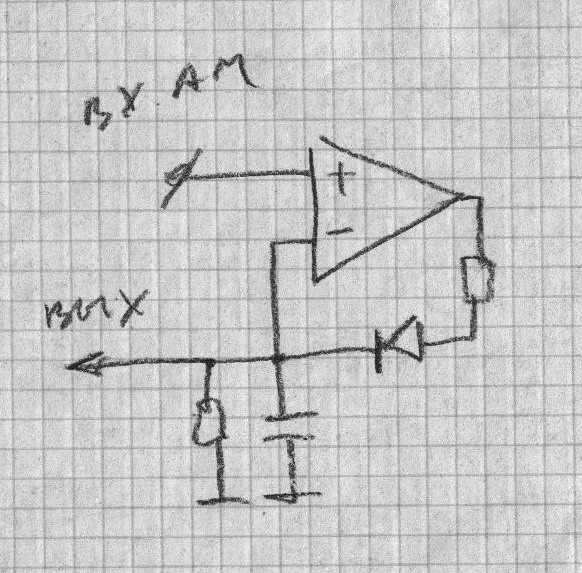 ВХ. АМ
+
−
ВЫХ